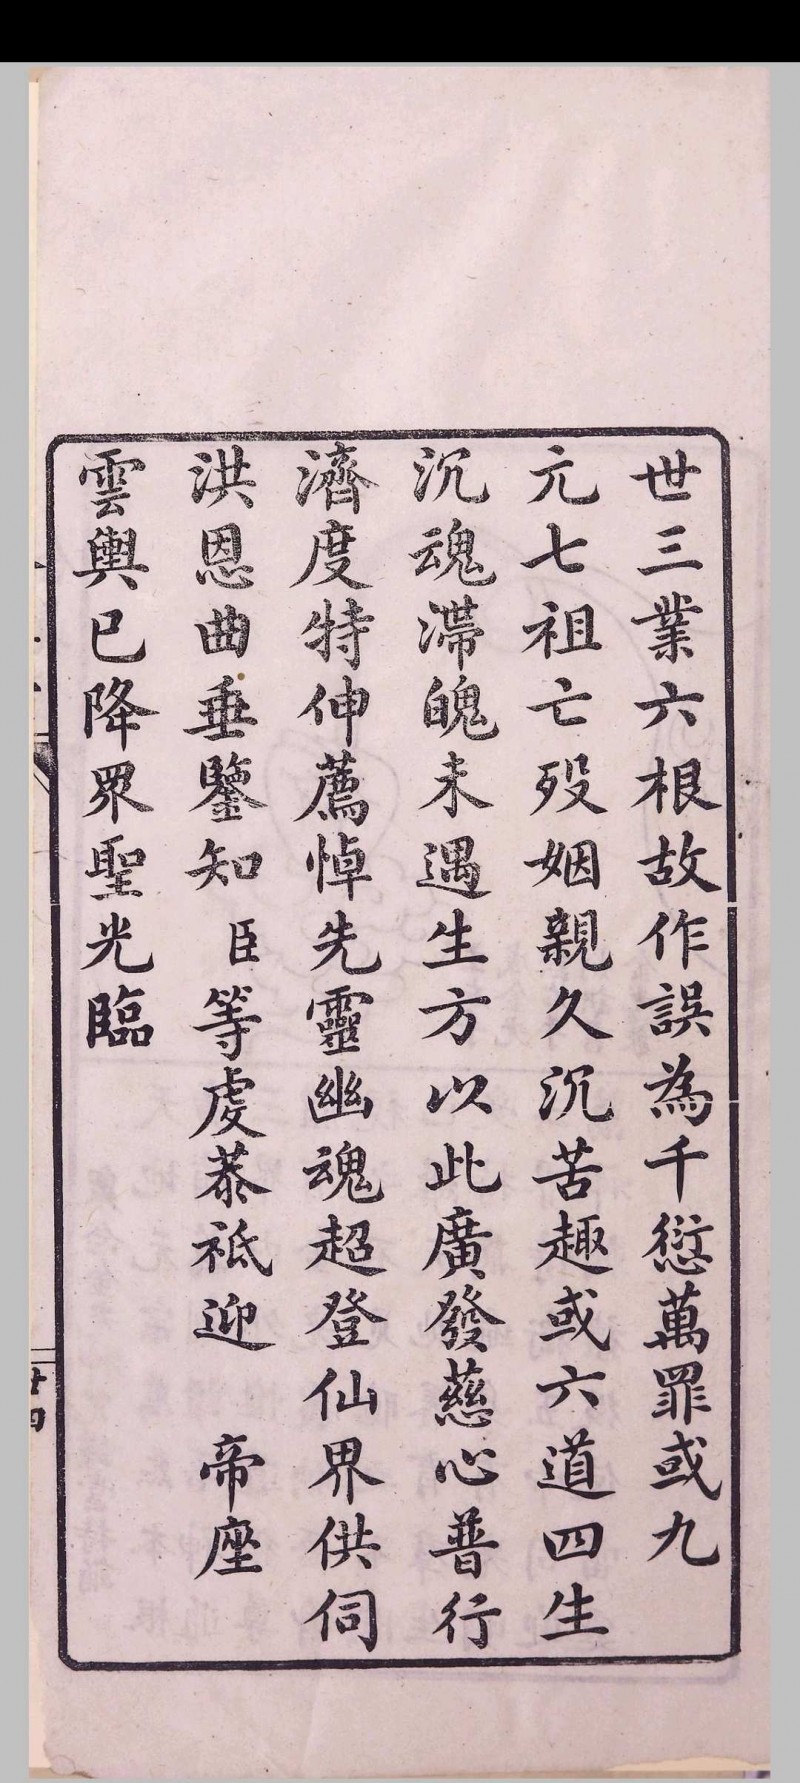 世三業六根故作誤為千愆萬罪或九
元七祖亡歿姻親久沉苦趣或六道四生
沉魂滯魄未遇生方以此廣發慈心普行
濟度特伸薦悼先靈幽魂超登仙界供伺
洪恩曲垂鑒知臣等虔恭祗迎 帝座
雲輿已降眾聖光臨
廿四